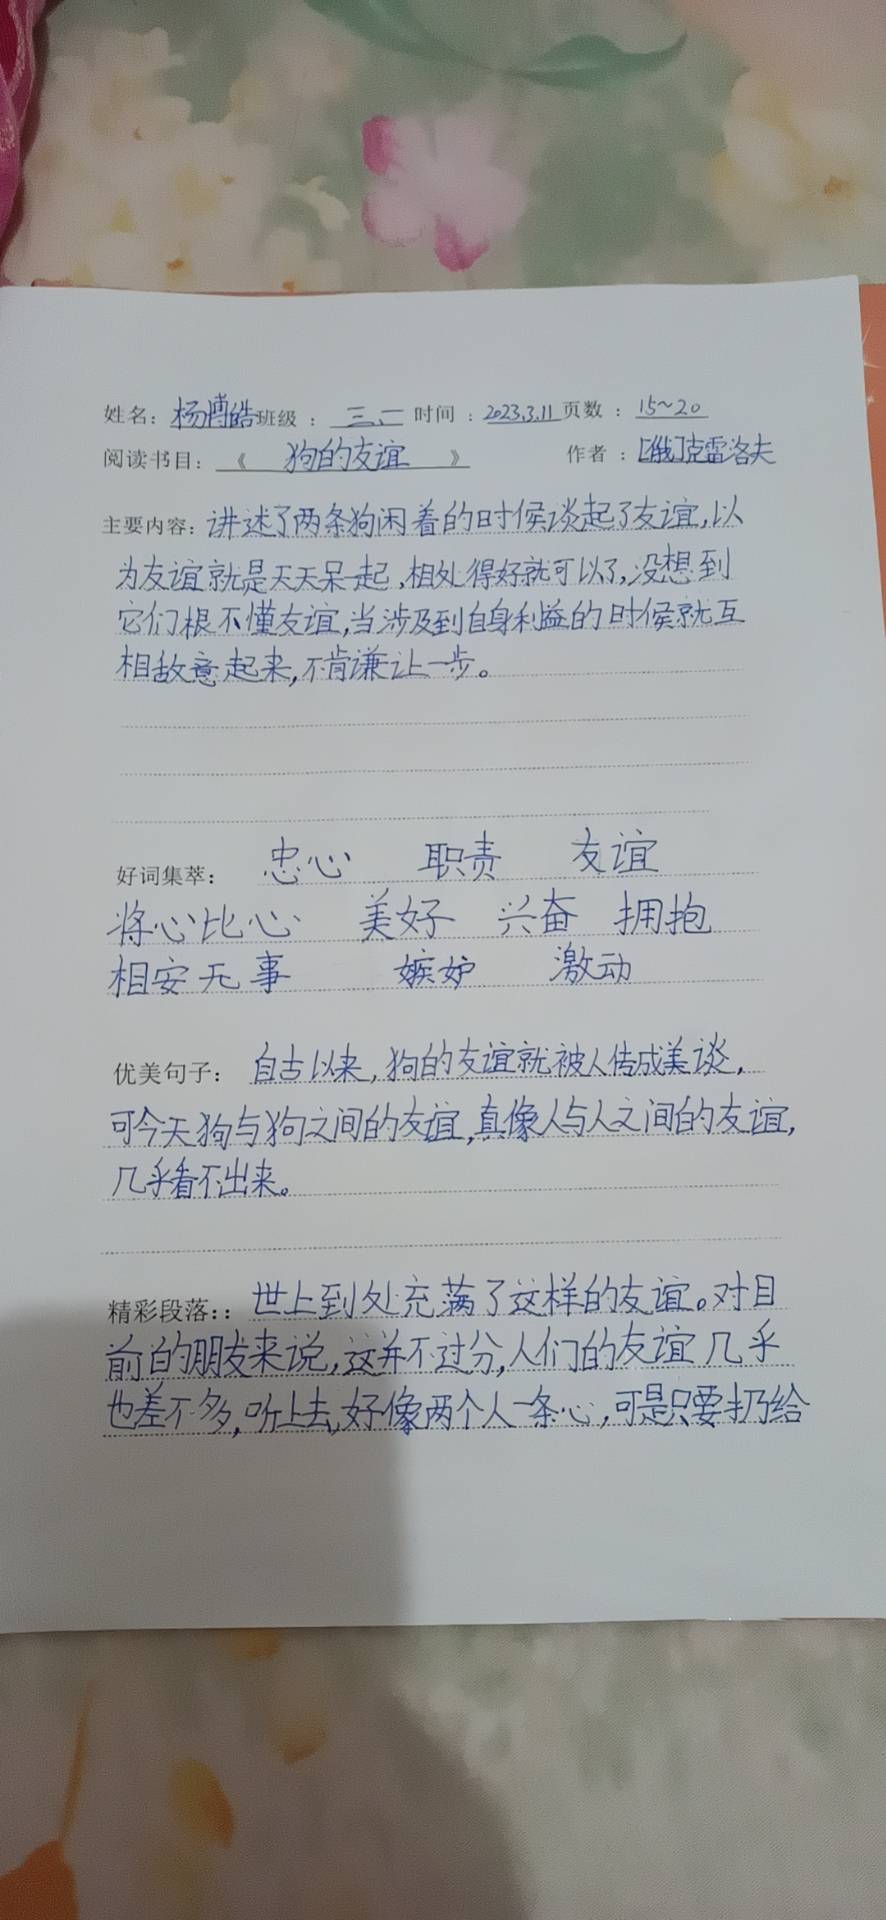 姓名：杨博皓班级：三、二时间：2023.3.11页数：15~20
阅读书目：《狗的友谊》作者：[俄]克雷洛夫
主要内容：讲述了两条狗闲着的时候谈起了友谊，以
为友谊就是天天呆一起，相处得好就可以了，没想到
它们根不懂友谊，当涉及到自身利益的时候就互
相敌意起来，不肯谦让一步。
好词集萃：忠心 职责 友谊
将心比心 美好 兴奋 拥抱
相安无事 嫉妒 激动
优美句子：自古以来，狗的友谊就被人传成美谈，
可今天狗与狗之间的友谊，真像人与人之间的友谊，
几乎看不出来。
精彩段落：：世上到处充满了这样的友谊。对目
前的朋友来说，这并不过分，人们的友谊几乎
也差不多，听上去，好像两个人一条心，可是只要扔给